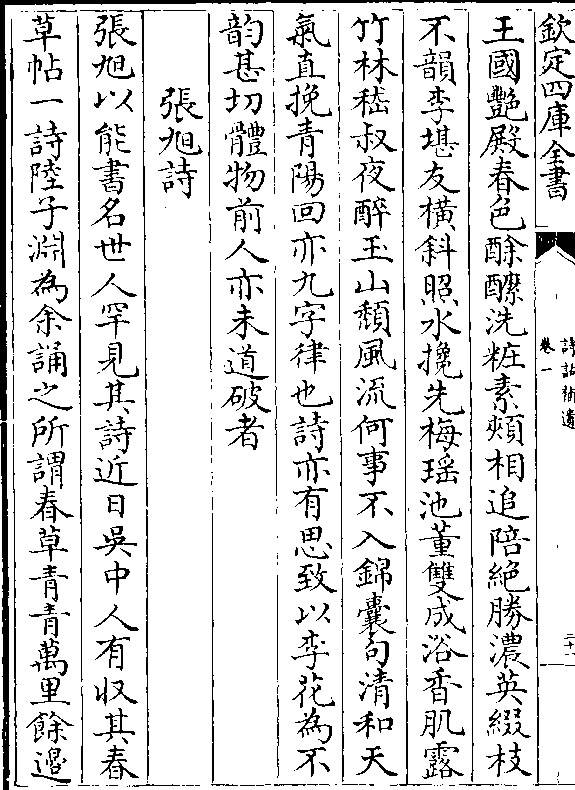 欽定四庫全書
詩話補遺
卷一
二十一
王國艷殿春色酴醾洗粧素頰相追陪絶勝濃英綴枝
不韻李堪友橫斜照水攙先梅瑶池董雙成浴香肌露
竹林嵇叔夜醉玉山頽風流何事不入錦囊句清和天
氣直挽青陽回亦九字律也詩亦有思致以李花為不
韵甚切體物前人亦未道破者
張旭詩
張旭以能書名世人罕見其詩近日吳中人有収其春
草帖一詩陸子淵為余誦之所謂春草青青萬里餘邉